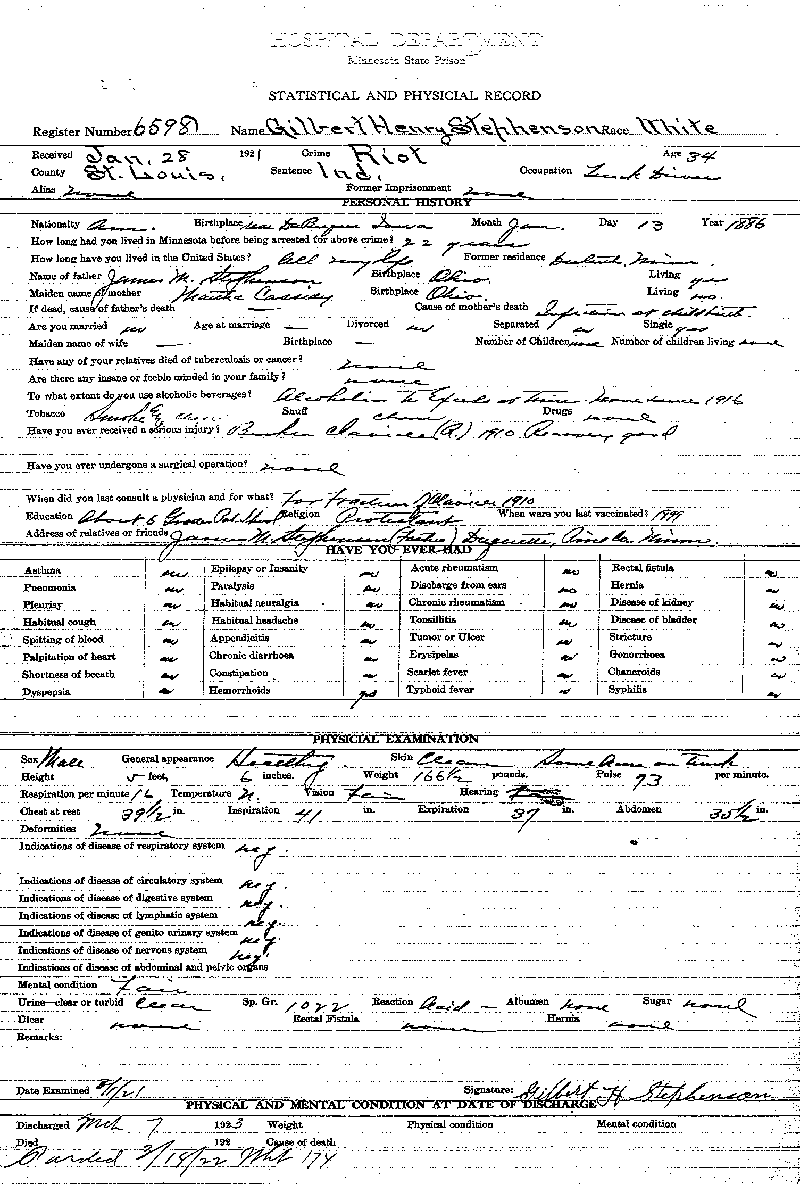 HOSPITAL DEPARTMENT
Minnesota State Prison
STATISTICAL AND PHYSICIAL RECORD
Register Number 6598 Name Gilbert Henry Stephenson Race White
Received Jan. 28 1921 Crime Riot Age 34
County St. Louis. Sentence Ind. Occupation Truck Driver
Alias none Former Imprisonment none
PERSONAL HISTORY
Nationality Am. Birthplace Iowa Month Jan. Day 13 Year 1886
How long had you lived in Minnesota before being arrested for above crime? 22 years
How long have you lived in the United States? All my life Former residence Duluth, Minn.
Name of father James M. Stephenson Birthplace Ohio. Living yes
Maiden name of mother Martha Cassidy Birthplace Ohio. Living no.
If dead, cause of father's death — Cause of mother's death Infection at childbirth.
Are you married no Age at marriage — Divorced no Separated no Single yes
Maiden name of wife — Birthplace — Number of Children none Number of children living none
Have any of your relatives died of tuberculosis or cancer? none
Are there any insane or feeble minded in your family? none
To what extent do you use alcoholic beverages? Alcoholic to Excess at times none since 1916
Tobacco Smoke & chew Snuff chew Drugs none
Have you ever received a serious injury? Broken Clavicle (R) 1910 Recovery good
Have you ever undergone a surgical operation? none
When did you last consult a physician and for what? For fracture of Clavicle 1910
Education About 6 Grades Pub. School Religion Protestant When were you last vaccinated? 1899
Address of relatives or friends James M. Stephenson (Father) Duquette, Pine Co. Minn.
HAVE YOU EVER HAD
Asthma no Epilepsy or Insanity no Acute rheumatism no Rectal fistula no
Pneumonia no Paralysis no Discharge from ears no Hernia no
Pleurisy no Habitual neuralgia no Chronic rheumatism no Disease of kidney no
Habitual cough no Habitual headache no Tonsillitis no Disease of bladder no
Spitting of blood no Appendicitis no Tumor or Ulcer no Stricture no
Palpitation of heart no Chronic diarrhoea no Erysipelas no Gonorrhoea no
Shortness of breath no Constipation no Scarlet fever no Chancroids no
Dyspepsia no Hemorrhoids yes Typhoid fever no Syphilis no
PHYSICAL EXAMINATION
Sex Male General appearance Healthy Skin Clean Some Acne on trunk
Height 5 feet, 6 inches. Weight 166½ pounds. Pulse 73 per minute.
Respiration per minute 16 Temperature N. Vision Fair Hearing
Chest at rest 39½ in. Inspiration 41 in. Expiration 37 in. Abdomen 35½ in.
Deformities none
Indications of disease of respiratory system neg.
Indications of disease of circulatory system neg.
Indications of disease of digestive system neg.
Indications of disease of lymphatic system neg.
Indications of disease of genito urinary system neg.
Indications of disease of nervous system neg.
Indications of disease of abdominal and pelvic organs
Mental condition Fair
Urine—clear or turbid clear Sp. Gr. 1022 Reaction Acid — Albumen none Sugar none
Ulcer none Rectal Fistula none Hernia none
Remarks:
Date Examined 2/1/21 Signature: Gilbert H Stephenson
PHYSICAL AND MENTAL CONDITION AT DATE OF DISCHARGE
Discharged Mch 7 1923 Weight Physical condition Mental condition
Died 192 Cause of death
Paroled 3/14/22 Wht 174